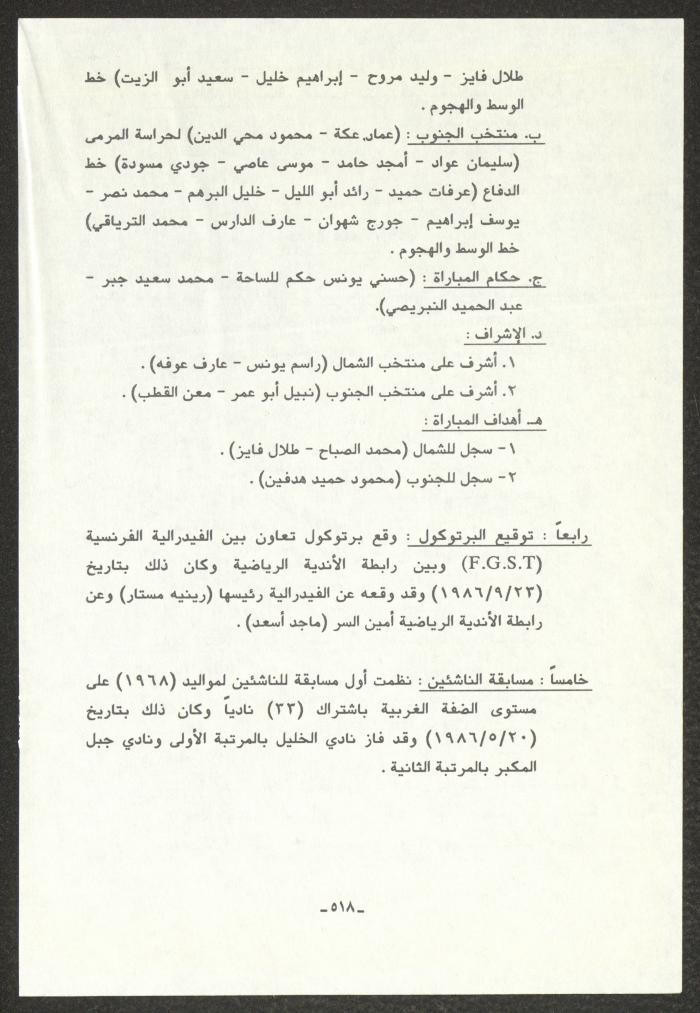 طلال فايز - وليد مروح - إبراهيم خليل - سعيد أبو الزيت) خط
الوسط والهجوم .
ب. منتخب الجنوب : (عماد عكة - محمود محي الدين) لحراسة المرمى
(سليمان عواد - أمجد حامد - موسى عاصي - جودي مسودة) خط
الدفاع (عرفات حميد - رائد أبو الليل - خليل البرهم - محمد نصر -
يوسف إبراهيم - جورج شهوان - عارف الدارس - محمد الترياقي)
خط الوسط والهجوم .
ج. حكام المباراة : (حسني يونس حكم للساحة - محمد سعيد جبر -
عبد الحميد النبريصي).
د. الإشراف :
١. أشرف على منتخب الشمال (راسم يونس - عارف عوفه) .
٢. أشرف على منتخب الجنوب (نبيل أبو عمر - معن القطب) .
هـ أهداف المباراة :
١- سجل للشمال (محمد الصباح - طلال فايز) .
٢- سجل للجنوب (محمود حميد هدفين) .
رابعاً : توقيع البرتوكول : وقع برتوكول تعاون بين الفيدرالية الفرنسية
(F.G.S.T) وبين رابطة الأندية الرياضية وكان ذلك بتاريخ
(١٩٨٦/٩/٢٣) وقد وقعه عن الفيدرالية رئيسها (رينيه مستار) وعن
رابطة الأندية الرياضية أمين السر (ماجد أسعد) .
خامساً : مسابقة الناشئين : نظمت أول مسابقة للناشئين لمواليد (١٩٦٨) على
مستوى الضفة الغربية باشتراك (٣٣) نادياً وكان ذلك بتاريخ
(١٩٨٦/٥/٢٠) وقد فاز نادي الخليل بالمرتبة الأولى ونادي جبل
المكبر بالمرتبة الثانية .
ـ٥١٨ـ